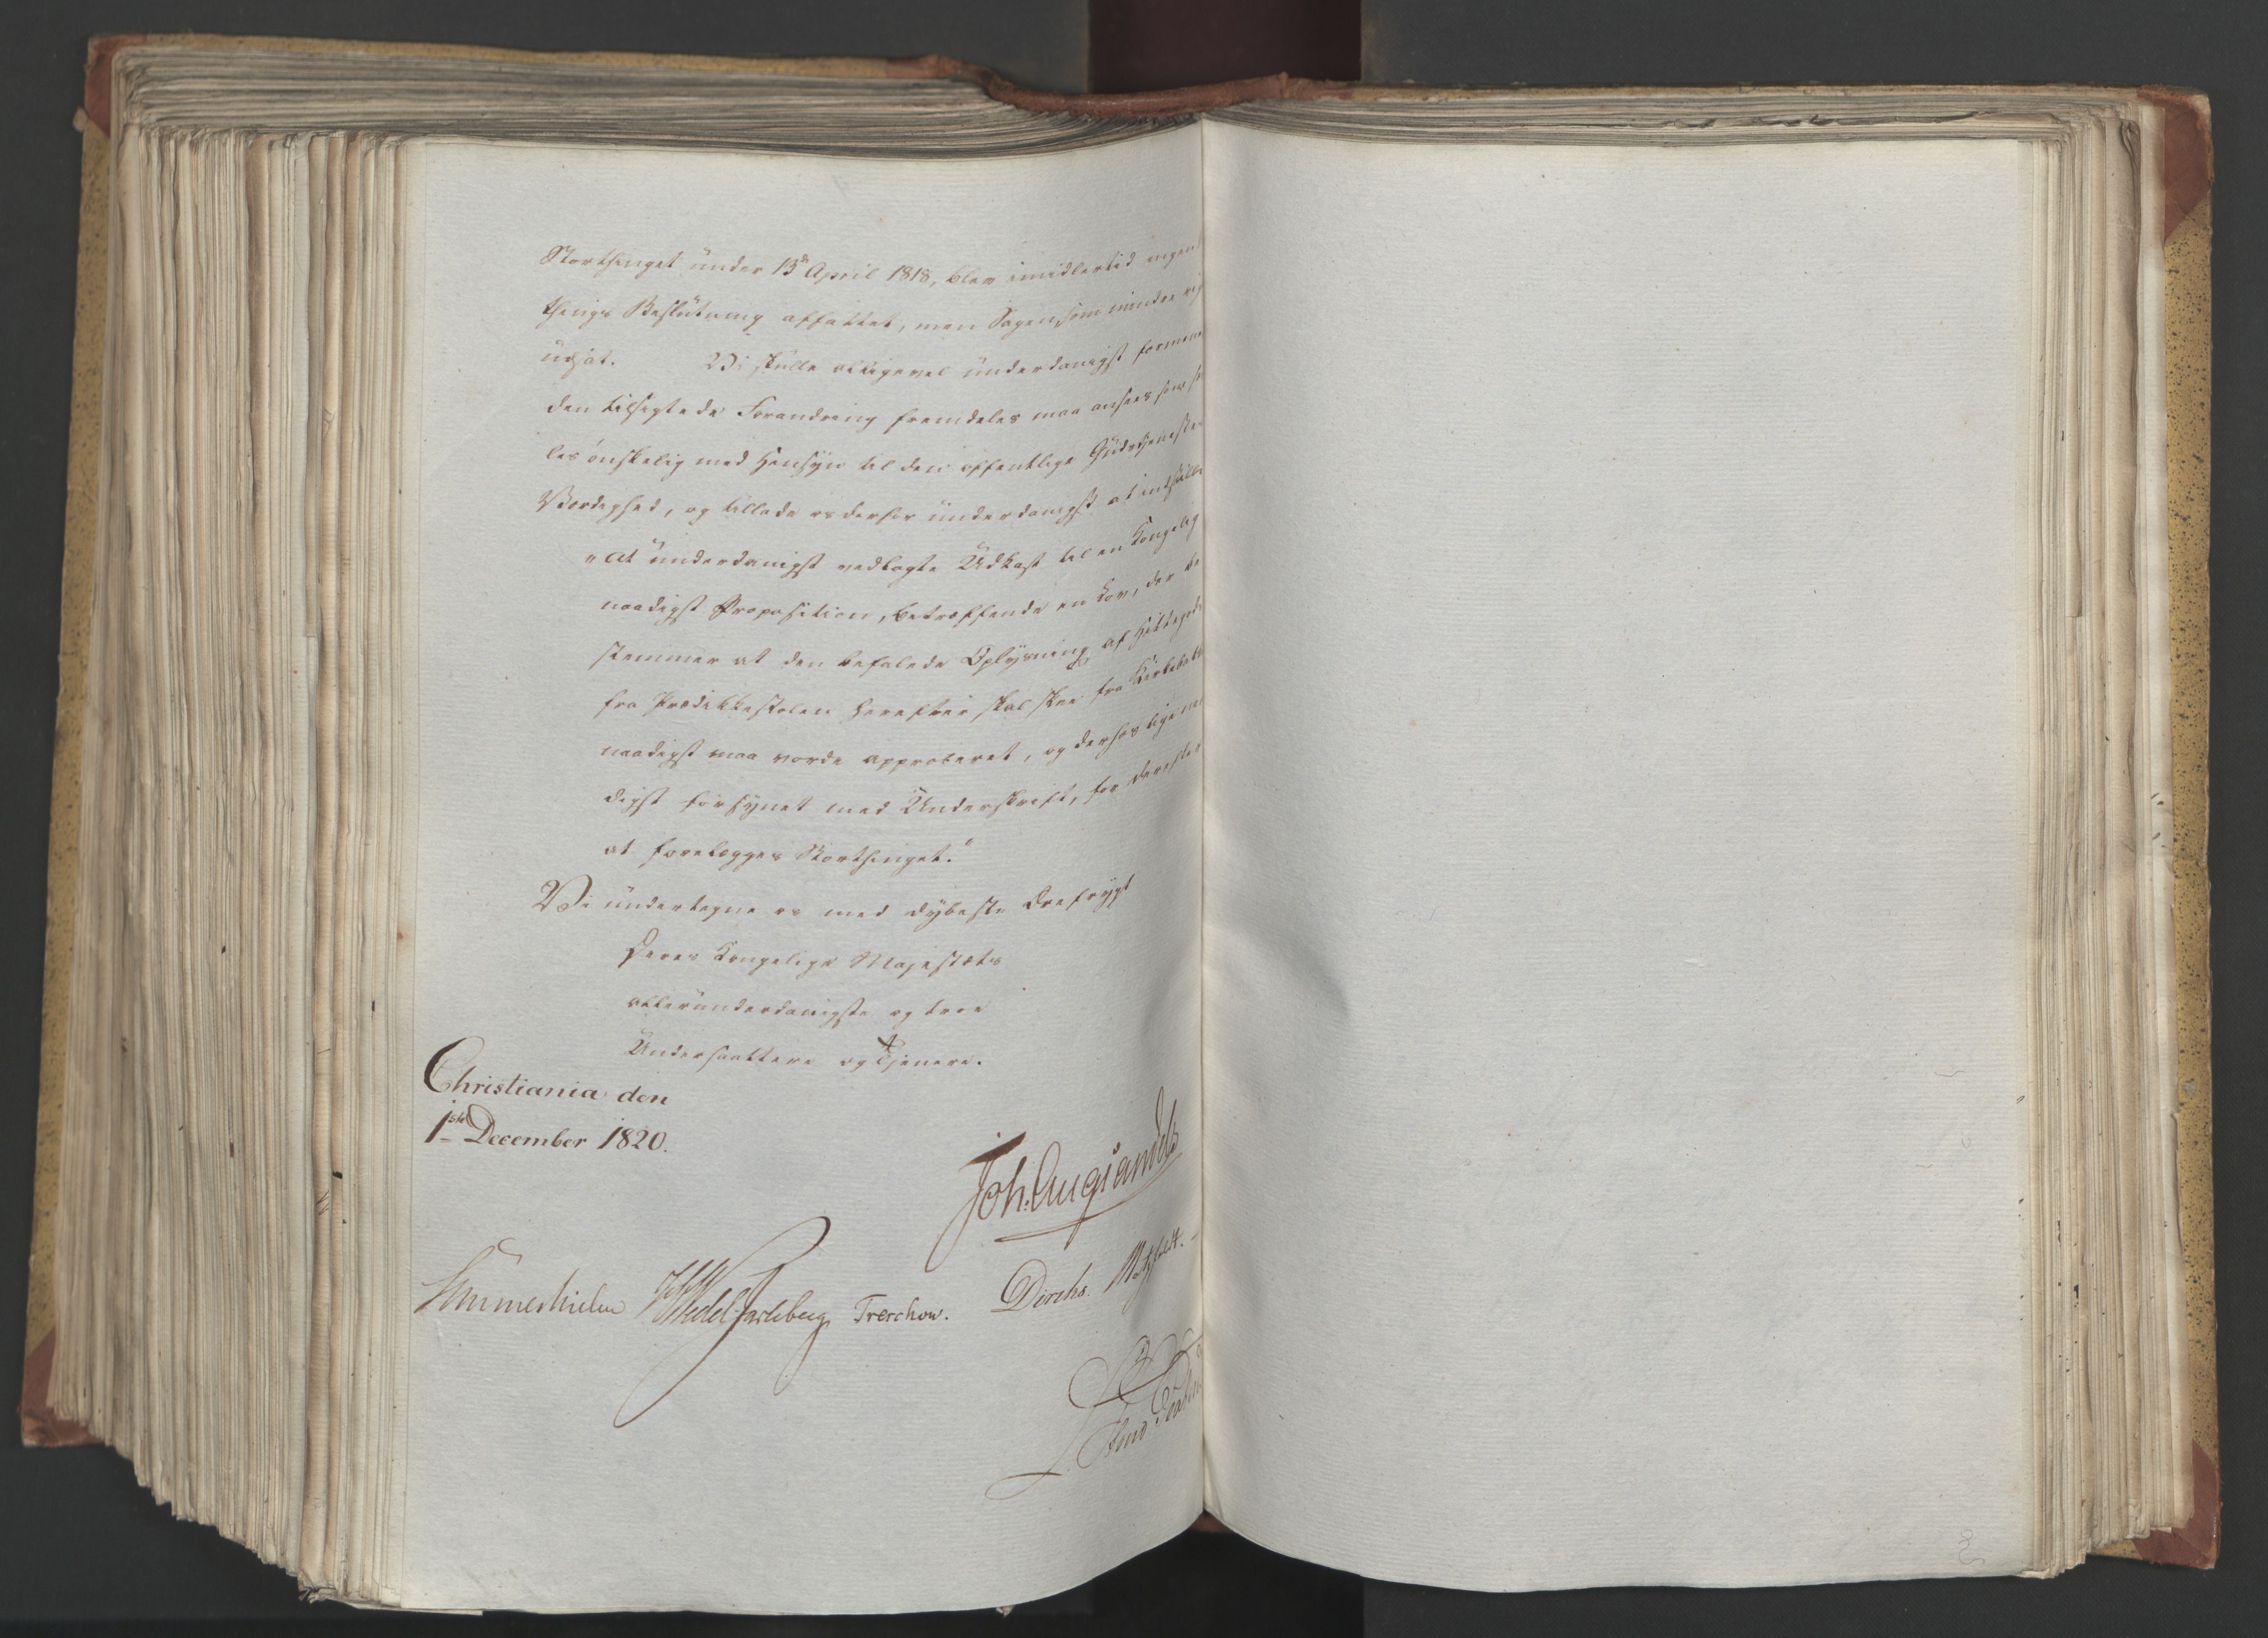 Storthinget under 13de April 1818, blev imidlertid ingen
things Beslutning affattet, men Sagen, som mindre vig
udsat. Vi skulle alligevel underdanigst formene
den tilsigtede Forandring fremdeles maa ansees som
les ønskelig med Hensyn til den offentlige Gudstjenestes
Værdighed, og tillade os derfor underdanigst at indstille
"At underdanigst vedlagte Udkast til en Kongelig
naadigst Proposition, betræffende en Lov, der be
stemmer at den befalede Oplysning af Hittegods
fra Prædikkestolen herefter skal skee fra Kirkebakk
naadigst maa vorde approberet, og derhos ligenaa
digst forsynet med Underskrift, for derefter
at forelægges Storthinget."
Vi undertegne os med dybeste Ærefrygt
Deres Kongelige Majestæts
allerunderdanigste og troe
Undersaattere og Tjenere.
Christiania den
1ste December 1820.
Joh: Aug: Sandels
Sommerhielm Wedel Jarlsberg Treschow. Diriks. Motzfeldt.